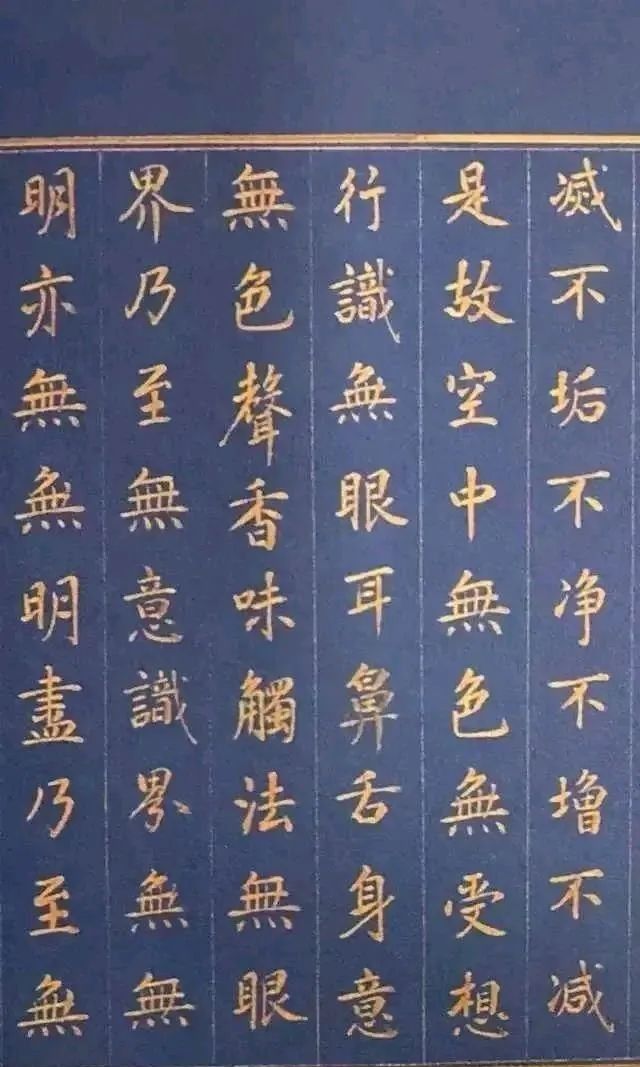 滅不垢不净不增不减
是故空中無色無受想
行識無眼耳鼻舌身意
無色聲香味觸法無眼
界乃至無意識界無無
明亦無無明盡乃至無